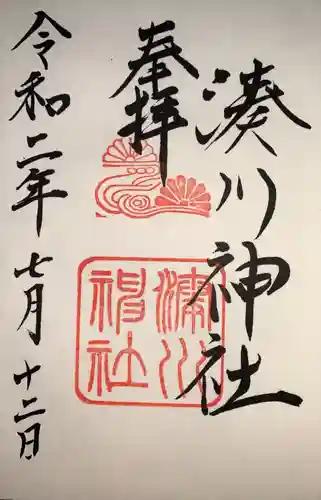 湊川神社
奉拝
湊川
神社
令和二年七月十二日